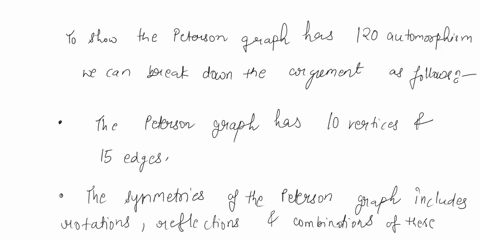 To show the Peterson graph has 120 automorphism
we can break down the argument as follows:-
• The Peterson graph has 10 vertices &
15 edges.
• The symmetries of the Peterson graph includes
rotations, reflections & combinations of these